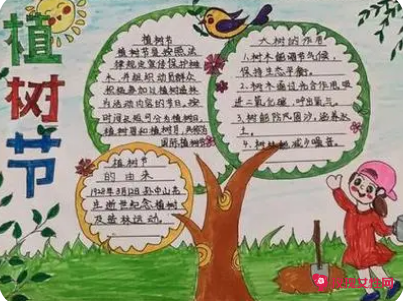 植树节
植树节
植树节是按照法
律规定宣传保护树
木,并组织动员群众
积极参加以植树造林
为活动内容的节日。按
时间长短可分为植树日、
植树周和植树月,
国际植树节
大树的作用
1.树木能调节气候,
保持生态平衡。
2.树木通过光合作用吸
进二氧化碳,呼出氧气。
3.树能防风固沙,涵养水
土。
4.树林能减少噪音。
植树节
的由来
1929年3月12日孙中山先
生逝世纪念植树
及造林运动。